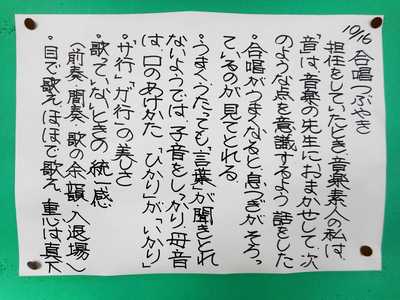 10/16 合唱つぶやき
担任をしていたとき音楽素人の私は、
「音は、音楽の先生におまかせして、次
のような点を意識するよう話をした
・合唱がうまくなると、息つぎがそろっ
ているのが見てとれる。
・うまくうたっても「言葉」が聞きとれ
ないようでは。子音をしっかり、母音
は、口のあけかた 「ひかり」が「いかり」
・「ザ行」「ガ行」の美しさ
・歌っていないときの統一感
(前奏、間奏、歌の余韻、入退場)
・目で歌え、ほほで歌え、重心は真下